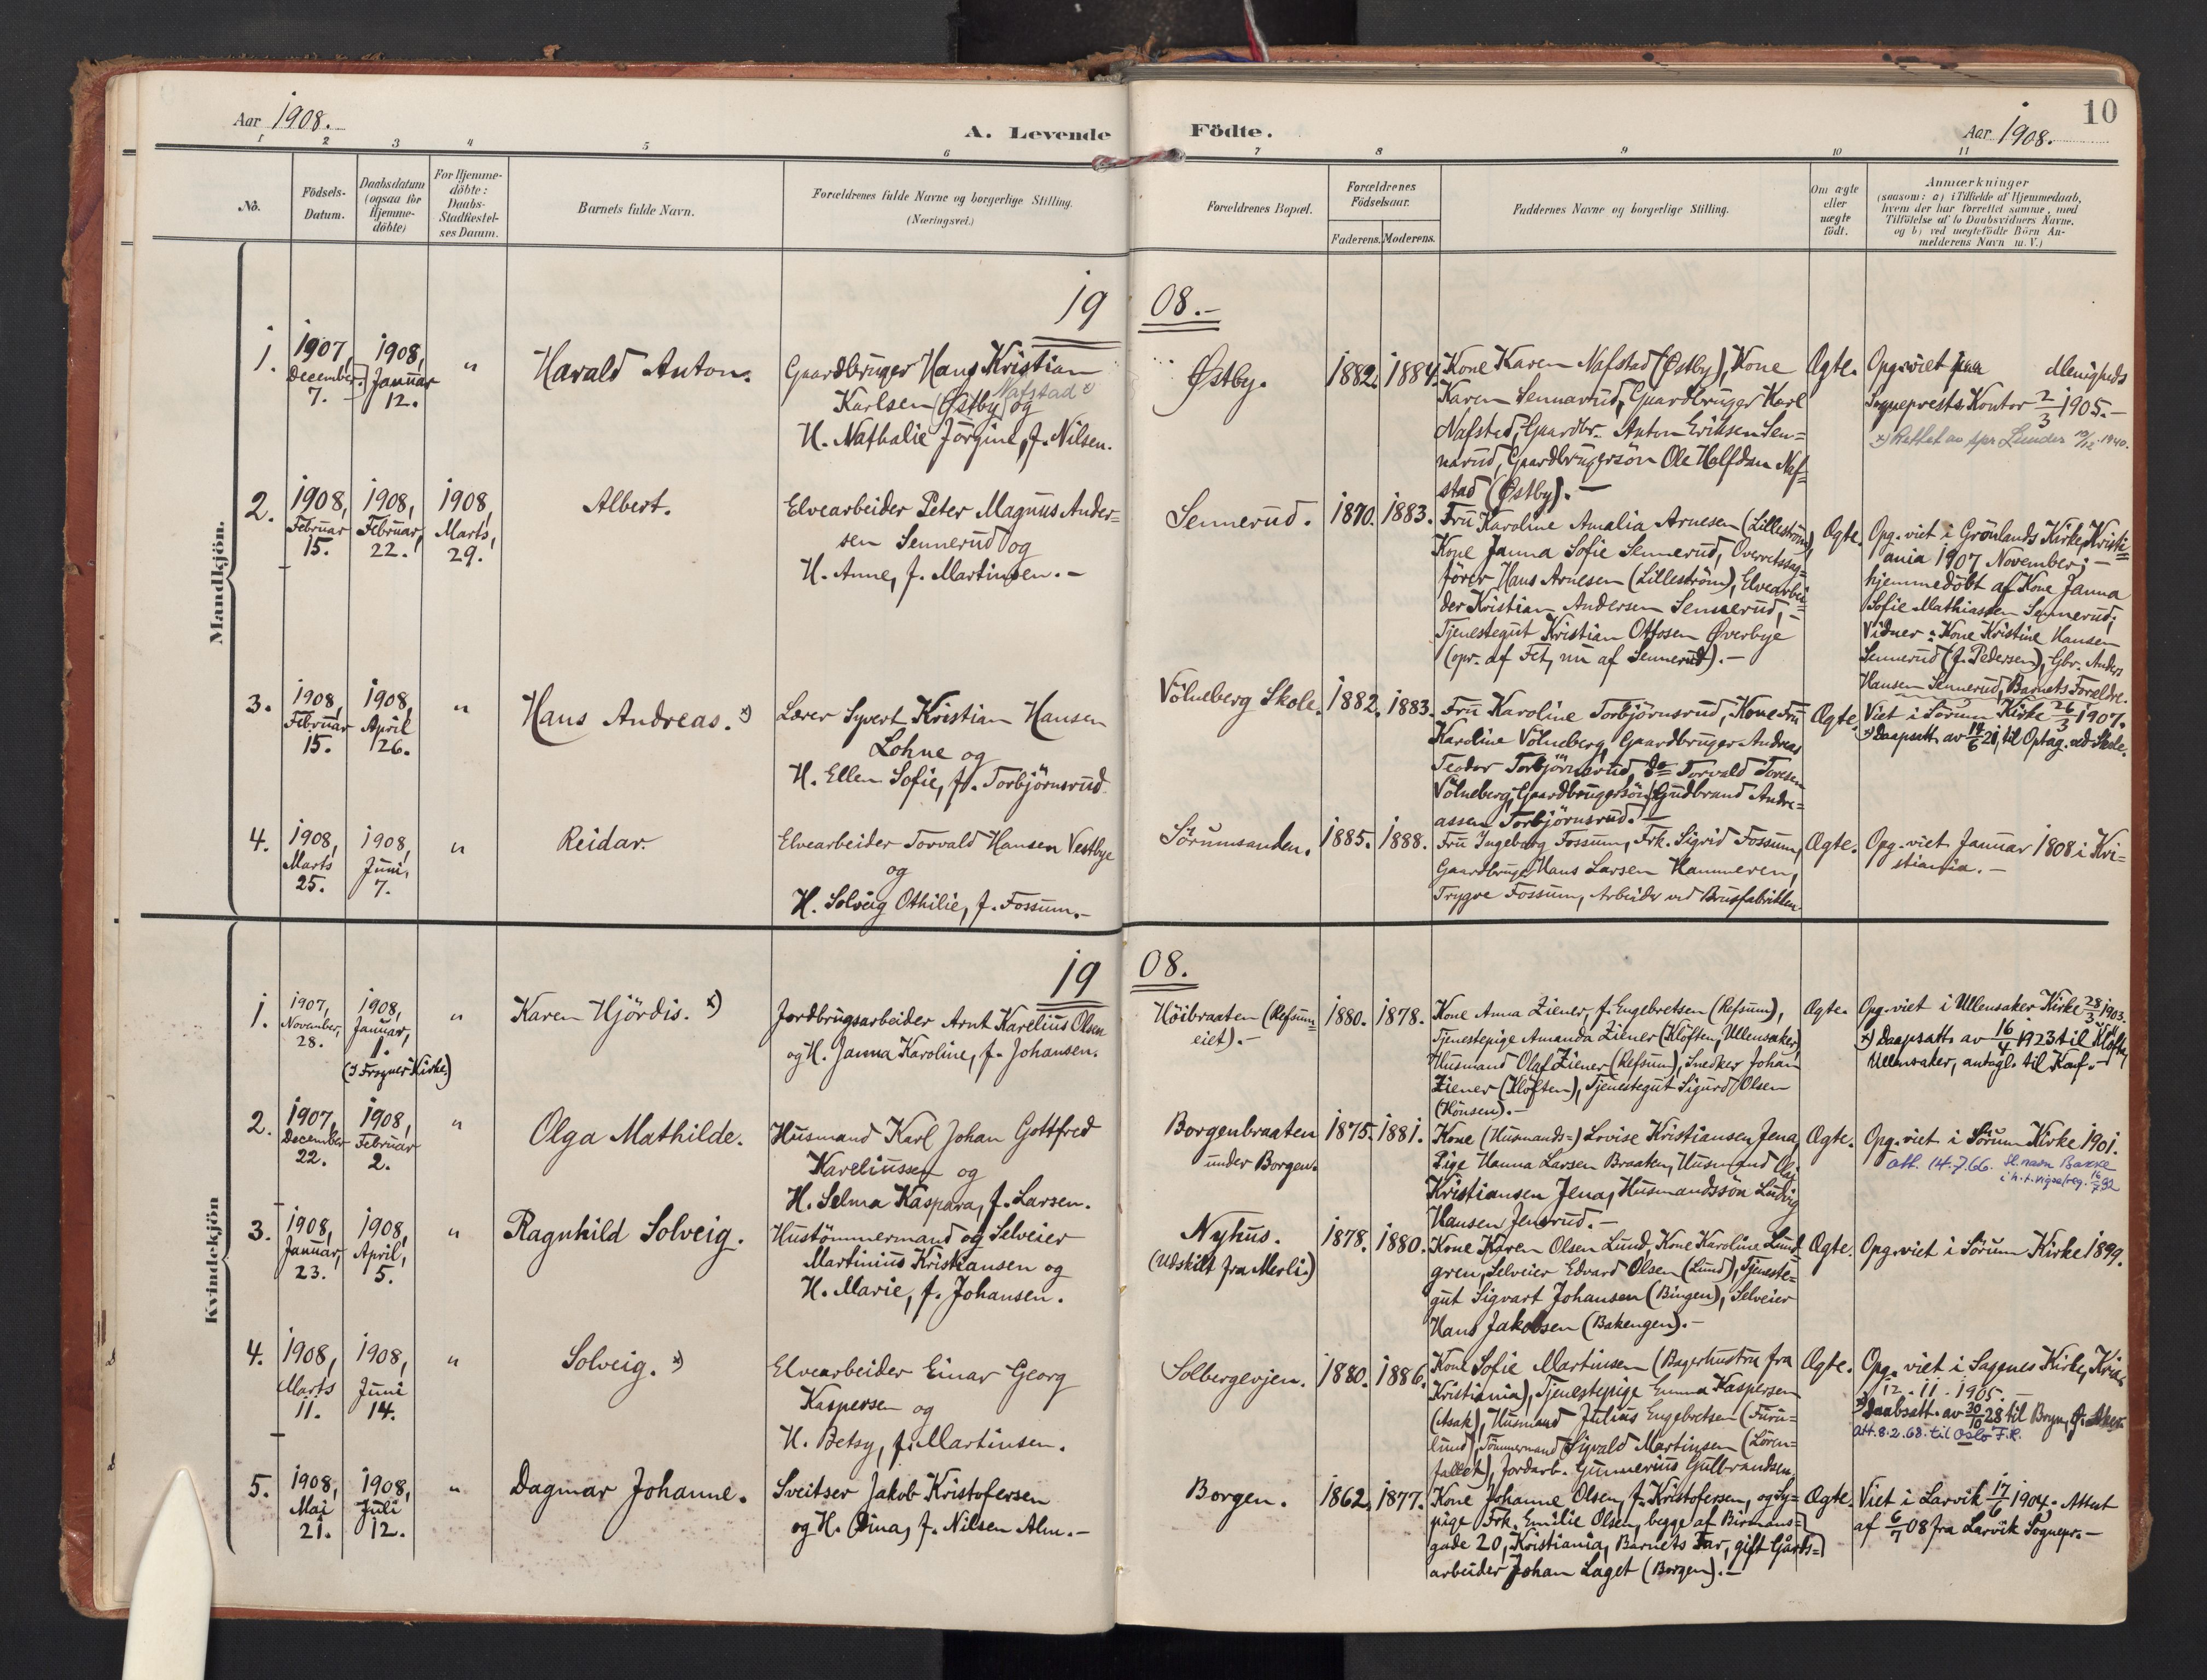 Aar 1908.
A. Levende Födte.
Aar 1908.
10
1 2 3 4 5 6 7 8 9 10 11
No.
Födsels-
Datum.
Daabsdatum
(ogsaa for
Hjemme-
döbte)
For Hjemme-
döbte:
Daabs-
Stadfæstel-
ses Datum.
Barnets fulde Navn.
Forældrenes fulde Navne og borgerlige Stilling.
(Næringsvei.)
Forældrenes Bopæl.
Forældrenes
Födselsaar.
Faderens. Moderens.
Faddernes Navne og borgerlige Stilling.
Om ægte
eller
uægte
födt.
Anmærkninger
(saasom: a) i Tilfælde af Hjemmedaab,
hvem der har forrettet samme, med
Tilföielse af to Daabsvidners Navne,
og b) ved uægtefödte Börn An-
melderens Navn m. V.)
Mandkjön.
1908.-
1.
1907,
December
7.
1908,
Januar
12.
"
Harald Anton.
Gaardbruger Hans Kristian
Nafstad x
Karlsen (Østby) og
H. Nathalie Jörgine, f. Nilsen.
Østby.
1882.
1884.
Kone Karen Nafstad (Østby), Kone
Karen Sennerud, Gaardbruger Karl
Nafstad, Gaardbr. Anton Eriksen Sen=
nerud, Gaardbrugersön Ole Halfdan Naf=
stad (Østby).-
Ægte.
Opg. viet paa Menigheds
Sogneprests Kontor 2/3 1905.-
x) Rettet av spr. Lunder 10/12 1940.
2.
1908,
Februar
15.
1908,
Februar,
22.
1908,
Marts,
29.
Albert.
Elvearbeider Peter Magnus Ander=
sen Sennerud og
H. Anne, f. Martinsen.-
Sennerud.
1870.
1883.
Fru Karoline Amalia Arnesen (Lilleström)
Kone Janna Sofie Sennerud, Overretssag=
förer Hans Arnesen (Lilleström), Elvearbei=
der Kristian Andersen Sennerud,-
Tjenestegut Kristian Ottosen Øverbye
(opr. af Fet, nu af Sennerud).-
Ægte.
Opg. viet i Grönlands Kirke, Kristi=
ania 1907 November;-
hjemmedöbt af Kone Janna
Sofie Mathiassen Sennerud;
Vidner: Kone Kristine Hansen
Sennerud (f. Pedersen), Gbr. Anders
Hansen Sennerud, Barnets Foreldre.
3.
1908,
Februar
15.
1908,
April
26.
"
Hans Andreas. x)
Lærer Syvert Kristian Hansen
Lohne og
H. Ellen Sofie, f. Torbjörnsrud
Völneberg Skole.
1882.
1883.
Fru Karoline Torbjörnsrud, Kone Fru
Karoline Völneberg, Gaardbruger Andreas
Teodor Torbjörnsrud, do Torvald Toresen
Völneberg, Gaardbrugersön Gudbrand Andre=
assen Torbjörnsrud.-
Ægte.
Viet i Sörum Kirke 26/3 1907.
x) Daapsatt. av 14/6 21, til Optag. ved Skole.
4.
1908,
Marts
25.
1908,
Juni,
7.
"
Reidar
Elvearbeider Torvald Hansen Vestbye
og
H. Solveig Othilie, f. Fossum.-
Sörumsanden.
1885.
1888.
Fru Ingeborg Fossum, Frk. Sigrid Fossum,
Gaardbruger Hans Larsen Hammeren,
Trygve Fossum, Arbeider ved Brusfabrikken
Ægte.
Opg. viet Januar 1808 i Kri=
stiania.-
Kvindekjön
1908.
1.
1907,
November,
28.
1908,
Januar,
1.
(I Frogner Kirke.)
"
Karen Hjördis. x)
Jordbrugsarbeider Arnt Karelius Olsen
og H. Janna Karoline, f. Johansen.
Höibraaten (Refsum=
eiet).-
1880.
1878.
Kone Anna Ziener, f. Engebretsen (Refsum),
Tjenestepige Amanda Ziener (Klöften, Ullensaker)
Husmand Olaf Ziener (Refsum), Snedker Johan
Ziener (Klöften), Tjenestegut Sigurd Olsen
(Hönsen).-
Ægte.
Opg. viet i Ullensaker Kirke 28/3 1903.
x) Daapsatt. av 16/4 1923 til Klöfta,
Ullensaker, antagl. til Konf.-
2.
1907,
December
22.
1908,
Februar
2.
"
Olga Mathilde.
Husmand Karl Johan Gottfred
Kareliussen og
H. Selma Kaspara, f. Larsen.
Borgenbraaten
under Borgen.
1875.
1881.
Kone (Husmands=) Lovise Kristiansen Jena,
Pige Hanna Larsen Braaten, Husmand Olaf
Kristiansen Jena, Husmandssön Ludvig
Hansen Jensrud.-
Ægte.
Opg. viet i Sörum Kirke 1901.
Att. 14.7.66. Sl. navn Bakke
i h.t. vigselreg. 16/7 92
3.
1908,
Januar,
23.
1908,
April,
5.
"
Ragnhild Solveig.
Hustömmermand og Selveier
Martinius Kristiansen og
H. Marie, f. Johansen.
Nyhus.
(Udskilt fra Merli.)
1878.
1880.
Kone Karen Olsen Lund, Kone Karoline Lund=
gren, Selveier Edvard Olsen (Lund), Tjeneste=
gut Sigvart Johansen (Bingen), Selveier
Hans Jakobsen (Bakengen).-
Ægte.
Opg. viet i Sörum Kirke 1899.
4.
1908,
Marts
11.
1908,
Juni
14.
"
Solveig. x)
Elvearbeider Einar Georg
Kaspersen og
H. Betsy, f. Martinsen.
Solbergevjen.
1880.
1886.
Kone Sofie Martinsen (Bagerhustru fra
Kristiania), Tjenestepige Emma Kaspersen
(Asak), Husmand Julius Engebretsen (Furu=
lund), Tömmermand Sigvald Martinsen (Lören=
fallet), Jordarb. Gunnerius Gulbrandsen
Ægte.
Opg. viet i Sagenes Kirke, Kria.
12-11-1905.-
x) Daabsatt. av 30/10 28 til Bryn, Ø. Aker
Att. 8.2.68. til Oslo F.R.
5.
1908,
Mai
21.
1908,
Juli
12.
"
Dagmar Johanne.
Sveitser Jakob Kristofersen
og H. Dina, f. Nilsen Alm.-
Borgen.
1862.
1877.
Kone Johanne Olsen, f. Kristofersen, og Sy=
pige Frk. Emilie Olsen, begge af Birmans=
gade 20, Kristiania, Barnets Far, gift Gårds=
arbeider Johan Laget (Borgen).-
Ægte.
Viet i Larvik 17/6 1904. Attest
af 6/7 08 fra Larvik Sognepr.-